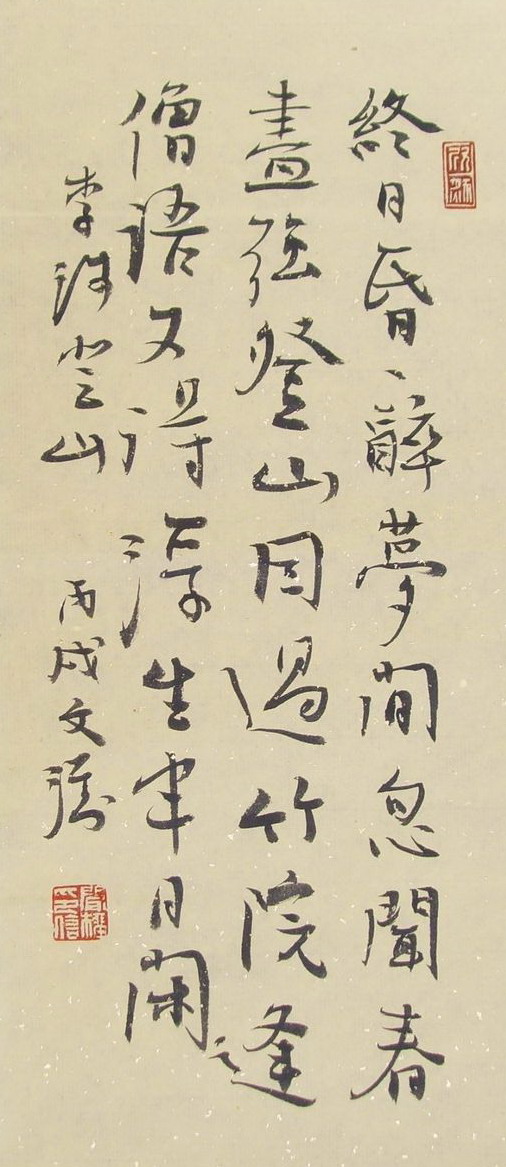 終日昏々醉夢間忽聞春
盡強登山因過竹院逢
僧語又得浮生半日閑
李涉登山 丙戌文